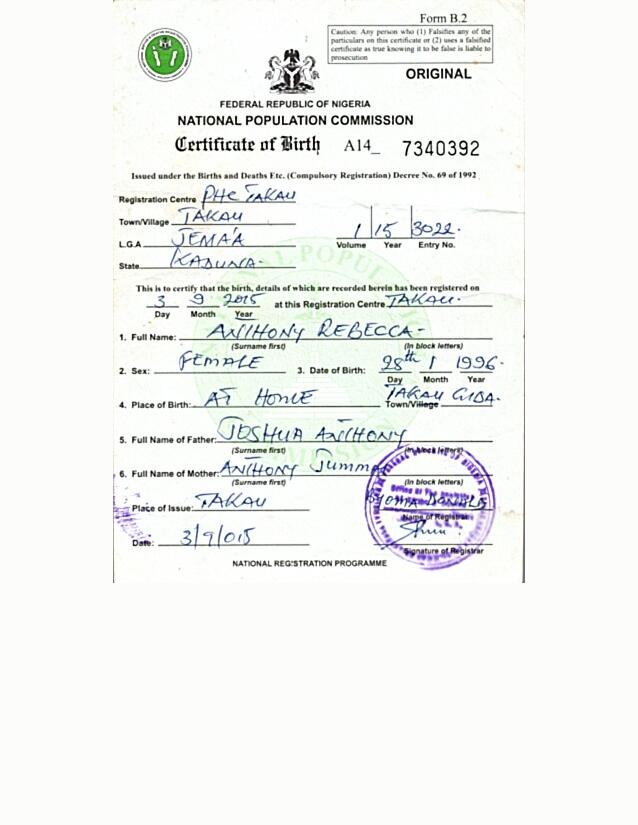 Form B.2
Caution: Any person who (1) Falsifies any of the
particulars on this certificate or (2) uses a falsified
certificate as true knowing it to be false is liable to
prosecution
ORIGINAL
FEDERAL REPUBLIC OF NIGERIA
NATIONAL POPULATION COMMISSION
Certificate of Birth A14_ 7340392
Issued under the Births and Deaths Etc. (Compulsory Registration) Decree No. 69 of 1992
Registration Centre PHC TAKAU
Town/Village TAKAU
L.G.A JEMA'A 1 15 3022.
Volume Year Entry No.
State KADUNA.
This is to certify that the birth, details of which are recorded herein has been registered on
3 9 2015 at this Registration Centre TAKAU.
Day Month Year
1. Full Name: ANTHONY REBECCA-
(Surname first) (In block letters)
2. Sex: FEMALE 3. Date of Birth: 28th 1 1996.
Day Month Year
4. Place of Birth: AT HOME TAKAU GIDA.
Town/Village
5. Full Name of Father: JOSHUA ANTHONY
(Surname first) (In block letters)
6. Full Name of Mother: ANTHONY Jumma
(Surname first) (In block letters)
Place of Issue: TAKAU
Name of Registrar
Date: 3/9/015
Signature of Registrar
NATIONAL REGISTRATION PROGRAMME